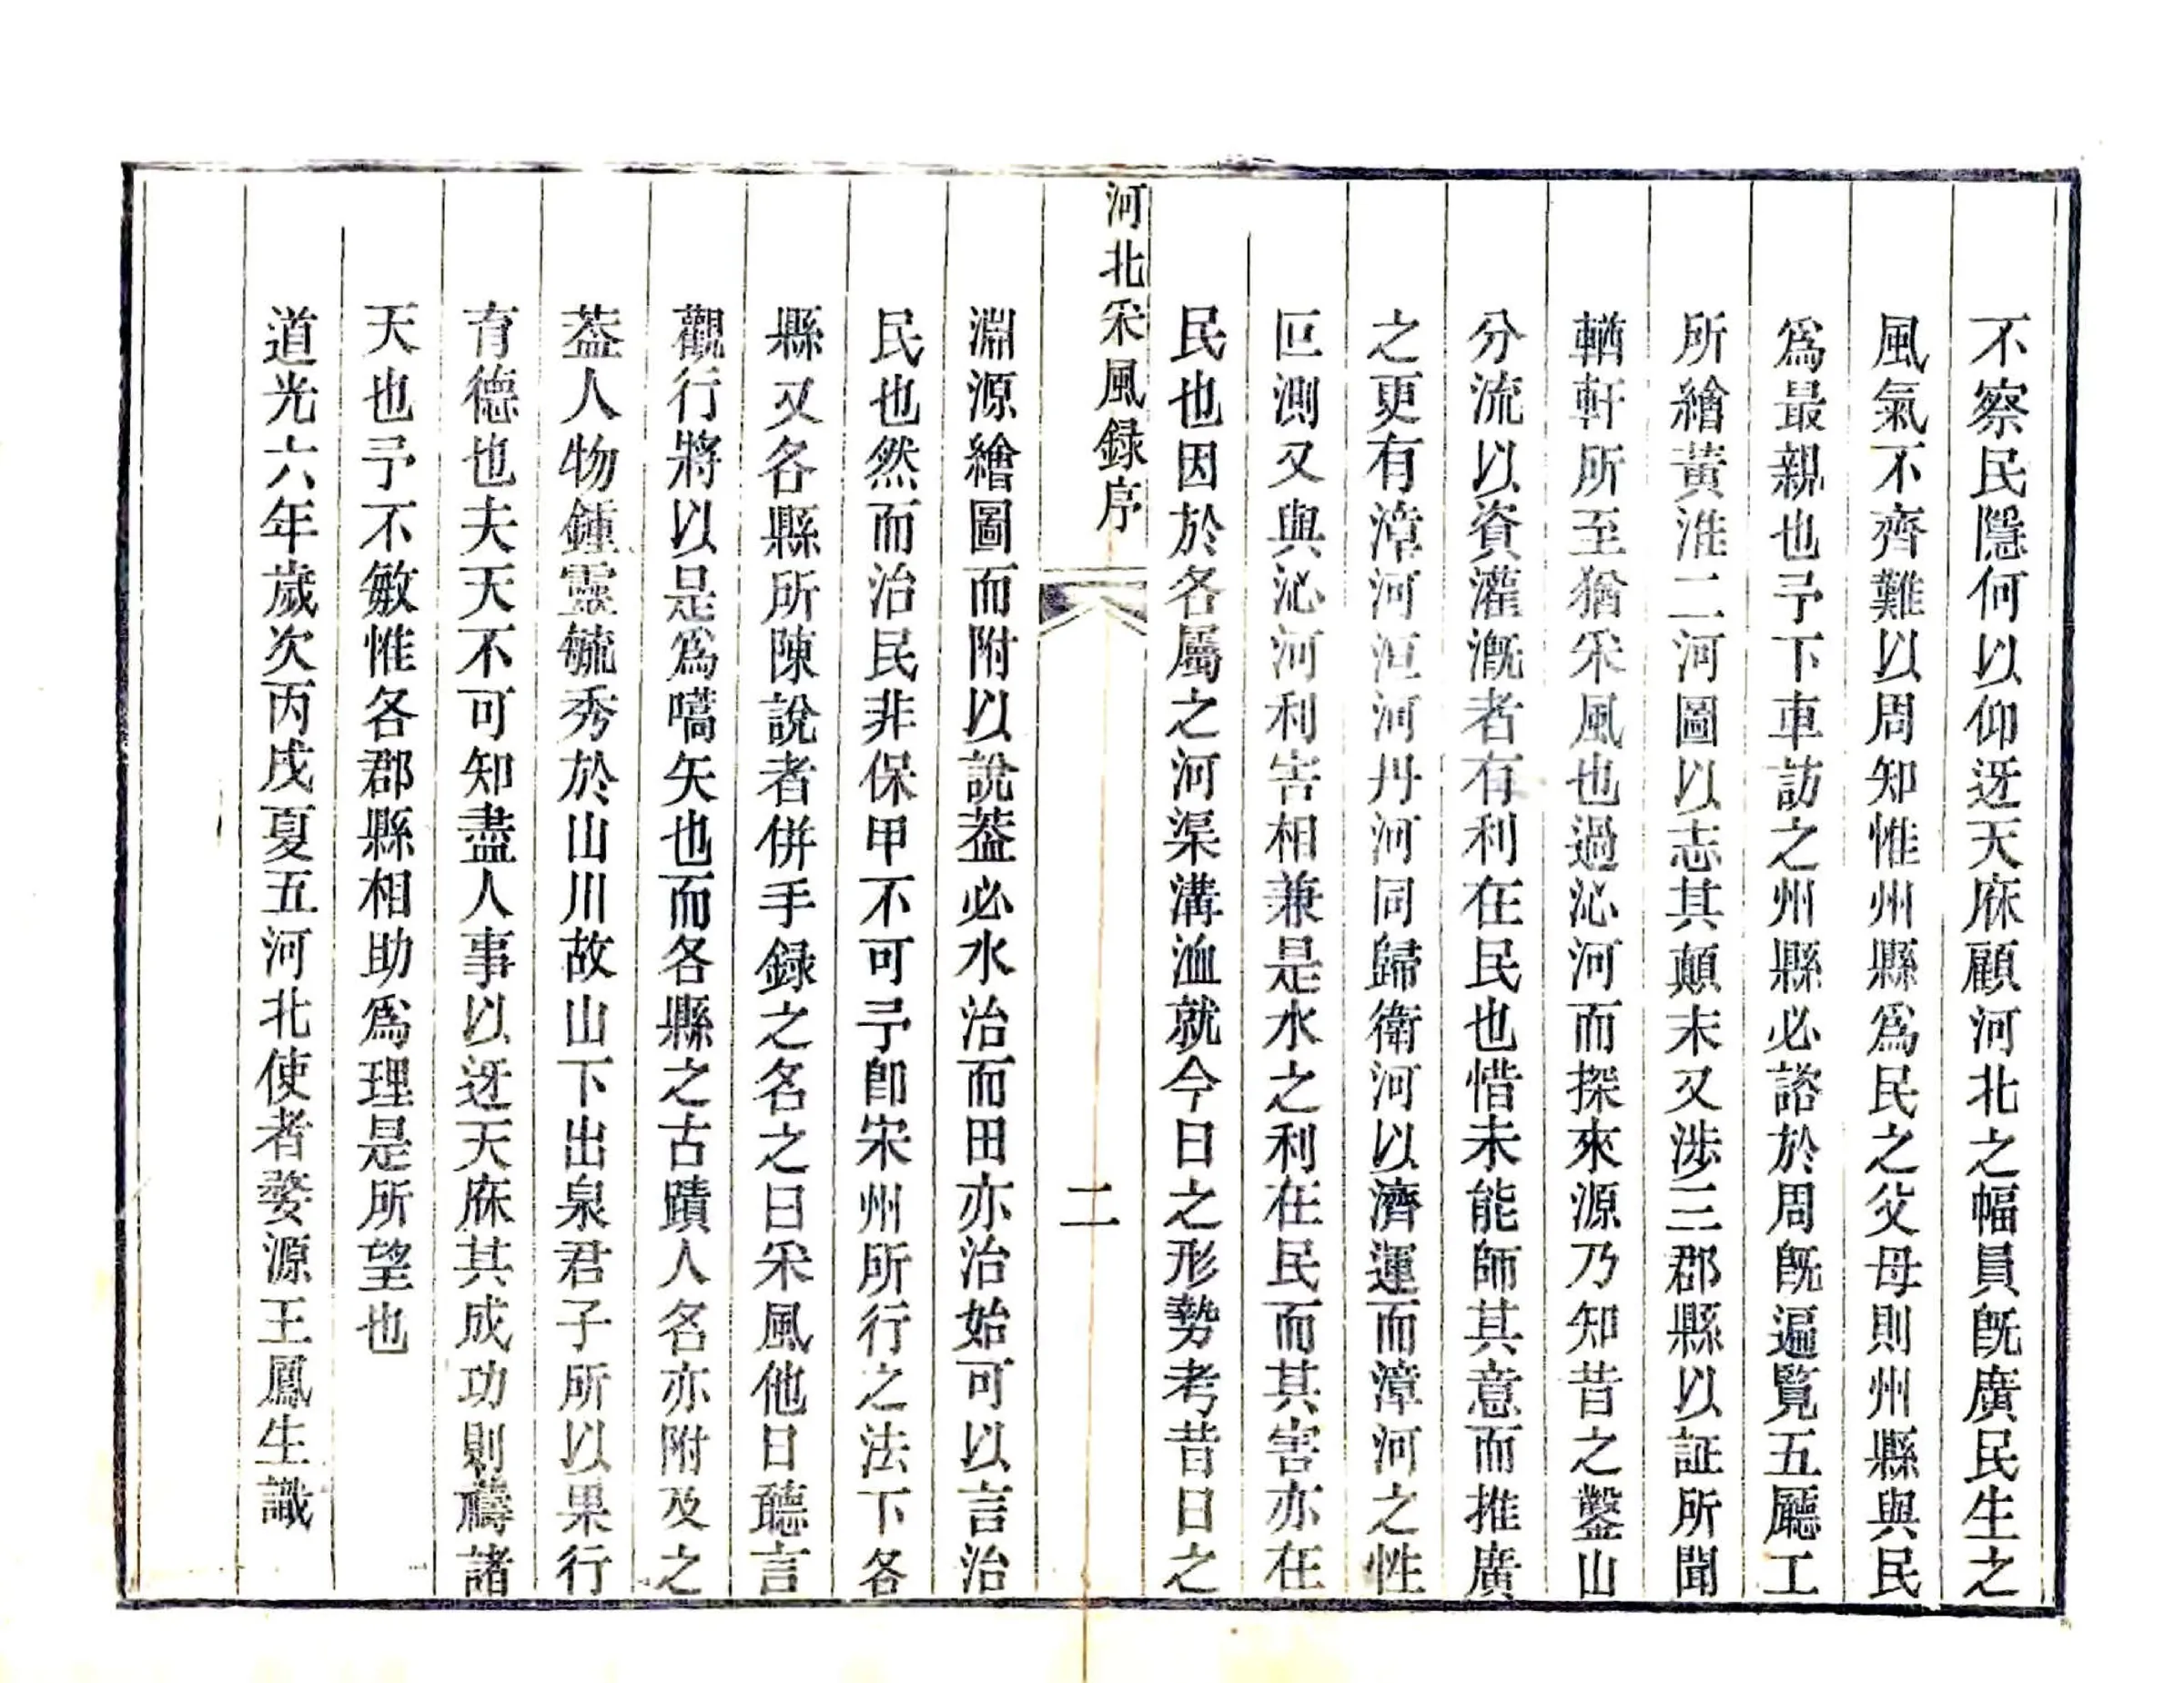 不察民隱何以仰迓天庥顧河北之幅員旣廣民生之
風氣不齊難以周知惟州縣爲民之父母則州縣與民
爲最親也予下車訪之州縣必諮於周旣遍覧五廳工
所繪黃淮二河圖以志其顛末又涉三郡縣以証所聞
輶軒所至猶采風也過沁河而探來源乃知昔之鑿山
分流以資灌漑者有利在民也惜未能師其意而推廣
之更有漳河洹河丹河同歸衛河以濟運而漳河之性
叵測又與沁河利害相兼是水之利在民而其害亦在
民也因於各屬之河渠溝洫就今日之形勢考昔日之
河北采風録序
二
淵源繪圖而附以說葢必水治而田亦治始可以言治
民也然而治民非保甲不可予卽宋州所行之法下各
縣又各縣所陳說者併手録之名之曰采風他日聽言
觀行將以是爲嚆矢也而各縣之古蹟人名亦附及之
葢人物鍾靈毓秀於山川故山下出泉君子所以果行
育德也夫天不可知盡人事以迓天庥其成功則禱諸
天也予不敏惟各郡縣相助爲理是所望也
道光六年歲次丙戌夏五河北使者婺源王鳳生識